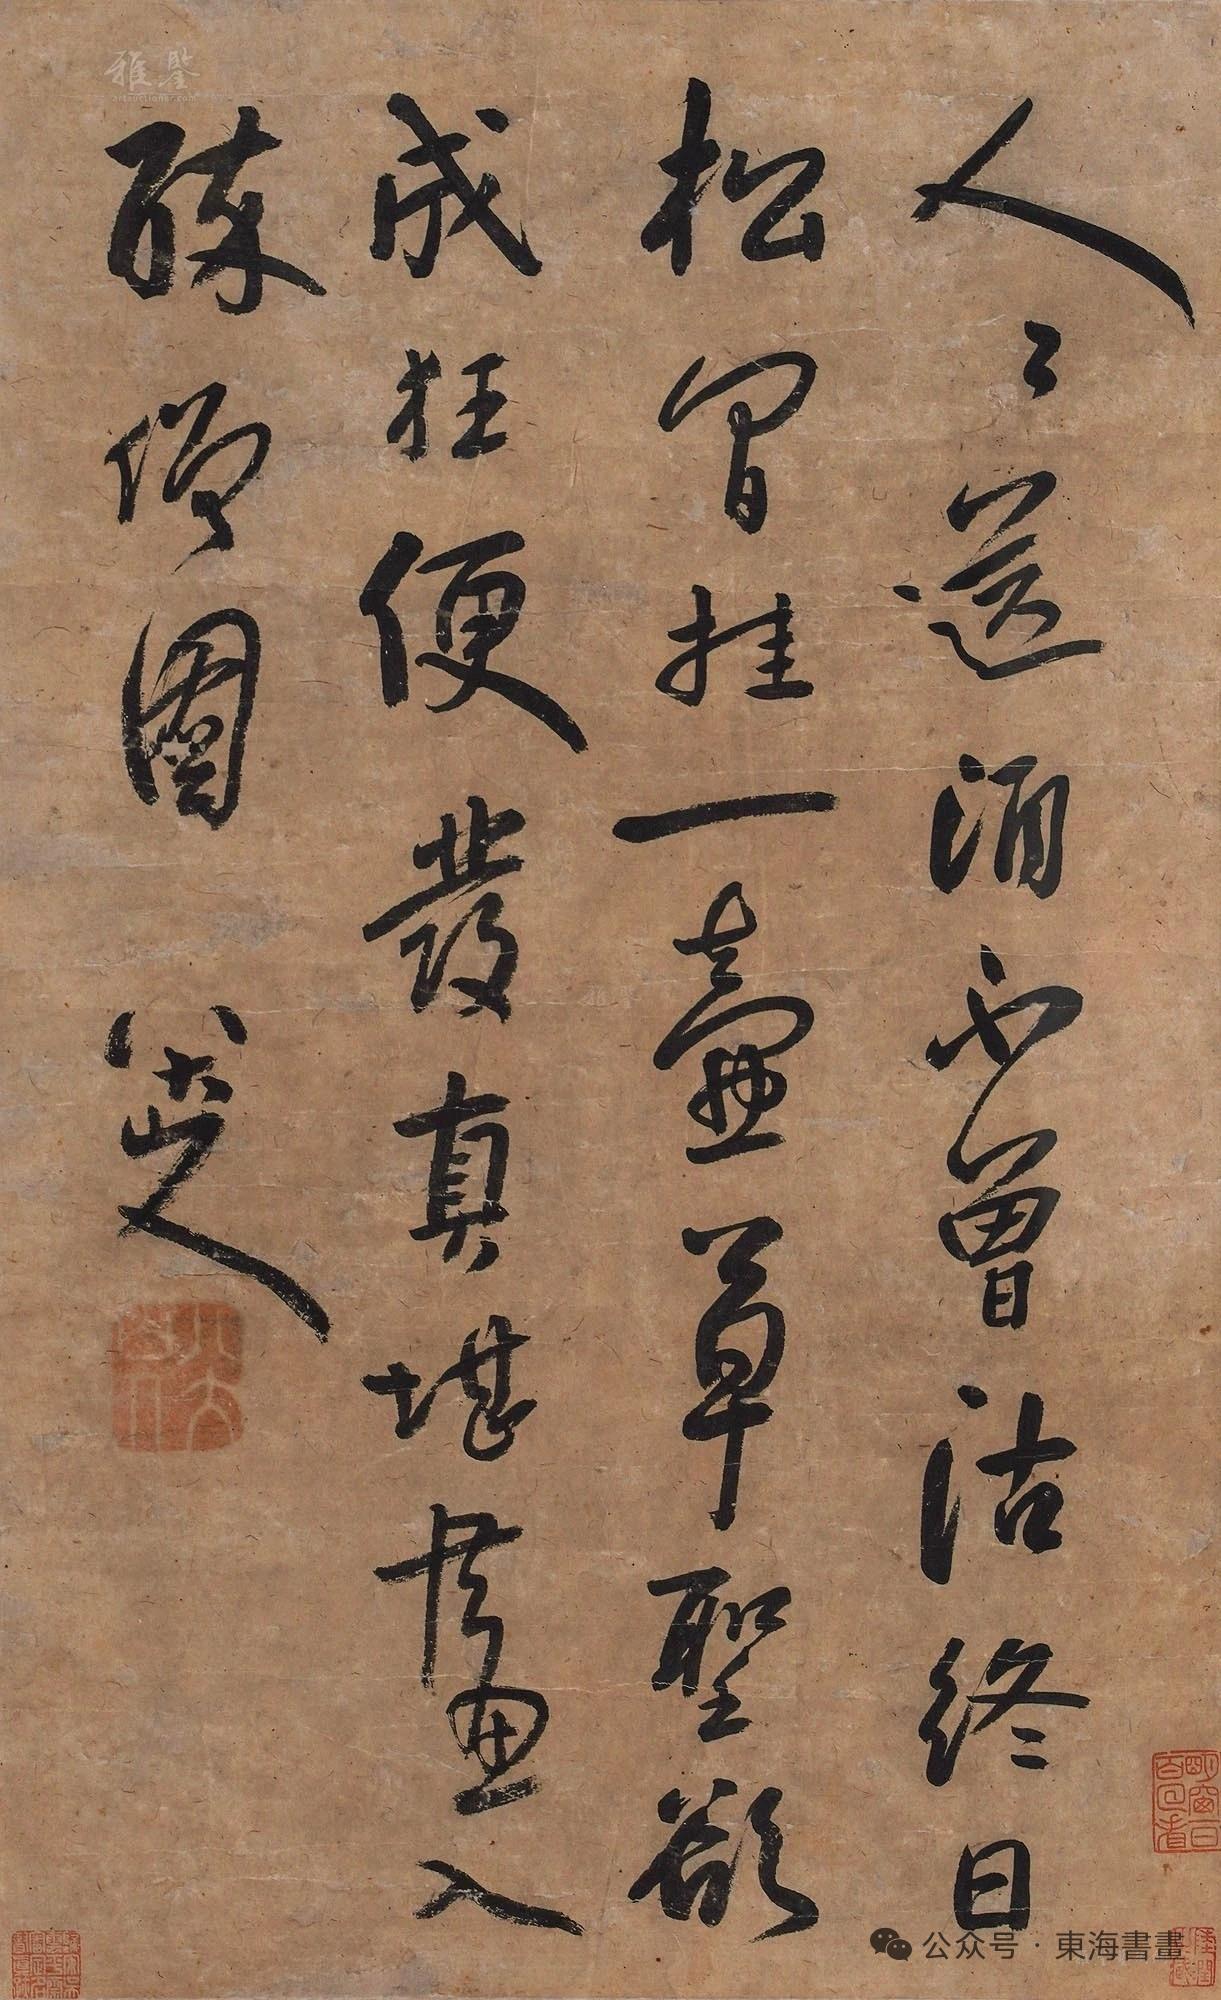 人〻送酒不曾沽終日
松間挂一壺草聖欲
成狂便發真堪畫入
醉僧圖
八大山人
雅鑒
artauctioner.com
公众号·東海書畫